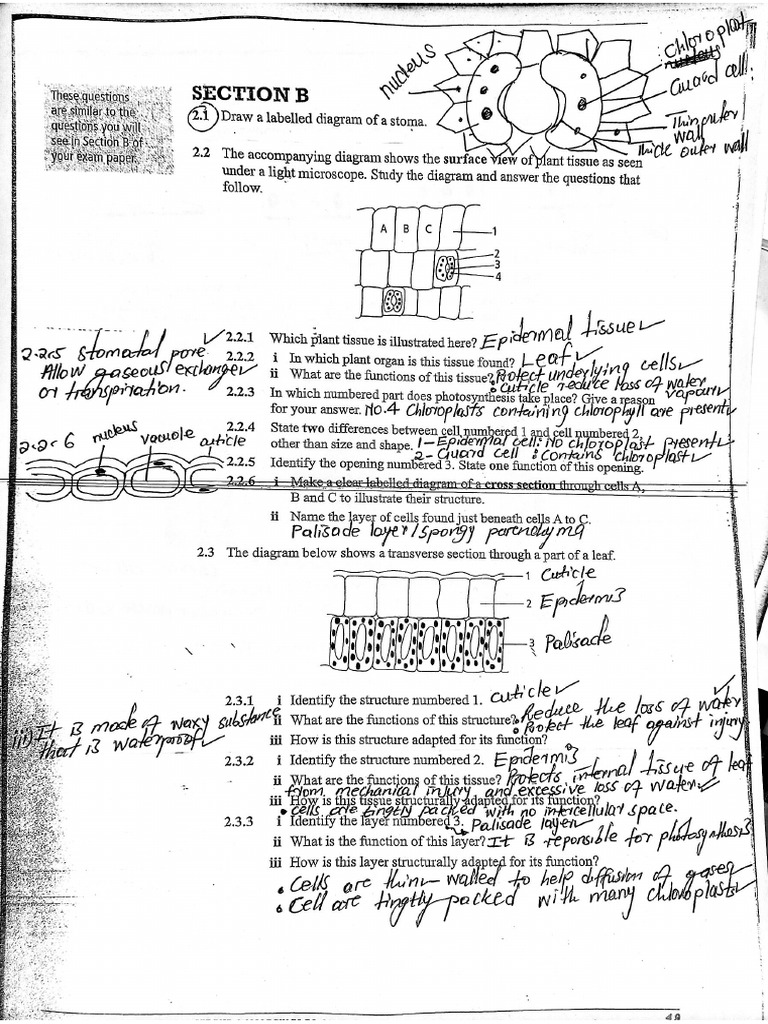 nucleus
Chloroplast
Guard cell.
Thick outer wall
These questions
are similar to the
questions you will
see in Section B of
your exam paper.
SECTION B
2.1 Draw a labelled diagram of a stoma.
2.2 The accompanying diagram shows the surface view of plant tissue as seen
under a light microscope. Study the diagram and answer the questions that
follow.
A B C 1
2
3
4
2.2.1 Which plant tissue is illustrated here? Epidermal tissue
2.2.2 i In which plant organ is this tissue found? Leaf
ii What are the functions of this tissue? Protect underlying cells
Cuticle reduce loss of water
vapour
2.2.3 In which numbered part does photosynthesis take place? Give a reason
for your answer. No.4 Chloroplasts containing chlorophyll are present
2.2.4 State two differences between cell numbered 1 and cell numbered 2,
other than size and shape. 1-Epidermal cell: No chloroplast present
2- Guard cell : Contains chloroplast
2.2.5 Identify the opening numbered 3. State one function of this opening.
2.2.5 Stomatal pore
Allow gaseous exchange
or transpiration.
2.2.6 i Make a clear labelled diagram of a cross section through cells A,
B and C to illustrate their structure.
2.2.6 nucleus vacuole cuticle
ii Name the layer of cells found just beneath cells A to C.
Palisade layer/spongy parenchyma
2.3 The diagram below shows a transverse section through a part of a leaf.
1 Cuticle
2 Epidermis
3 Palisade
2.3.1 i Identify the structure numbered 1. Cuticle
ii What are the functions of this structure? Reduce the loss of water
Protect the leaf against injury
iii How is this structure adapted for its function?
iii) It is made of waxy substance
that is waterproof
2.3.2 i Identify the structure numbered 2. Epidermis
ii What are the functions of this tissue? Protects internal tissue of leaf
from mechanical injury and excessive loss of water.
iii How is this tissue structurally adapted for its function?
cells are tingtly packed with no intercellular space.
2.3.3 i Identify the layer numbered 3. Palisade layer
ii What is the function of this layer? It is reponsible for photosynthesis
iii How is this layer structurally adapted for its function?
Cells are thin-walled to help diffusion of gases
Cell are tingtly packed with many chloroplasts